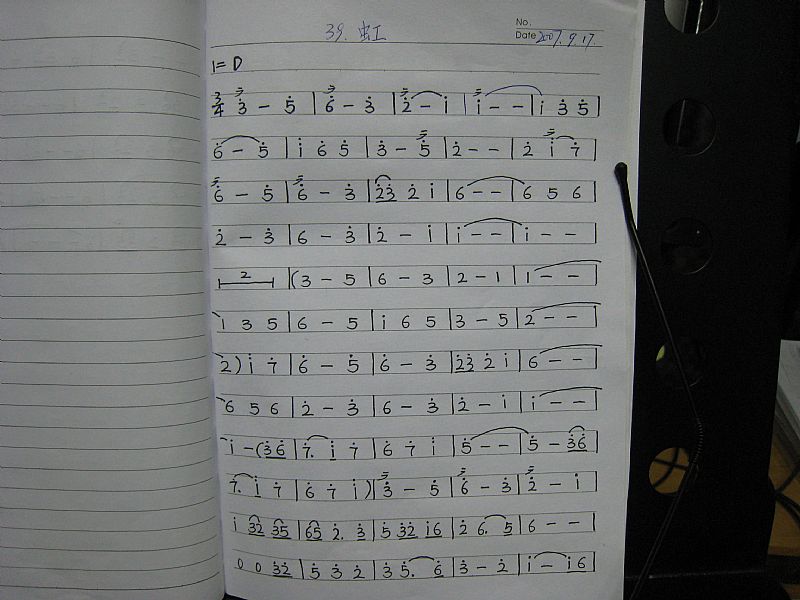 39. 虹
No.
Date 2007. 9. 17.
1= D
3/4 3̇ – 5̇ | 6̇ – 3̇ | 2̇ – i | i – – | i 3̇ 5̇ |
6̇ – 5̇ | i 6̇ 5̇ | 3̇ – 5̇ | 2̇ – – | 2̇ i 7̇ |
6̇ – 5̇ | 6̇ – 3̇ | 2̇3̇ 2̇ i | 6 – – | 6 5 6 |
2̇ – 3̇ | 6 – 3̇ | 2̇ – i | i – – | i – – |
2 | (3 – 5 | 6 – 3 | 2 – 1 | 1 – – |
i 3 5 | 6 – 5 | i 6 5 | 3 – 5 | 2 – – |
2) i 7̇ | 6̇ – 5̇ | 6̇ – 3̇ | 2̇3̇ 2̇ i | 6 – – |
6 5 6 | 2̇ – 3̇ | 6 – 3̇ | 2̇ – i | i – – |
i – (3̇6̇ | 7̇. i 7̇ | 6̇ 7̇ i | 5̇ – – | 5̇ – 3̇6̇ |
7̇. i 7̇ | 6̇ 7̇ i) | 3̇ – 5̇ | 6̇ – 3̇ | 2̇ – i |
i 3̇2̇ 3̇5̇ | 6̇5̇ 2̇. 3̇ | 5̇ 3̇2̇ i6 | 2̇ 6. 5 | 6 – – |
0 0 3̇2̇ | 5̇ 3̇ 2̇ | 3̇ 5̇. 6̇ | 3̇ – 2̇ | i – i6 |